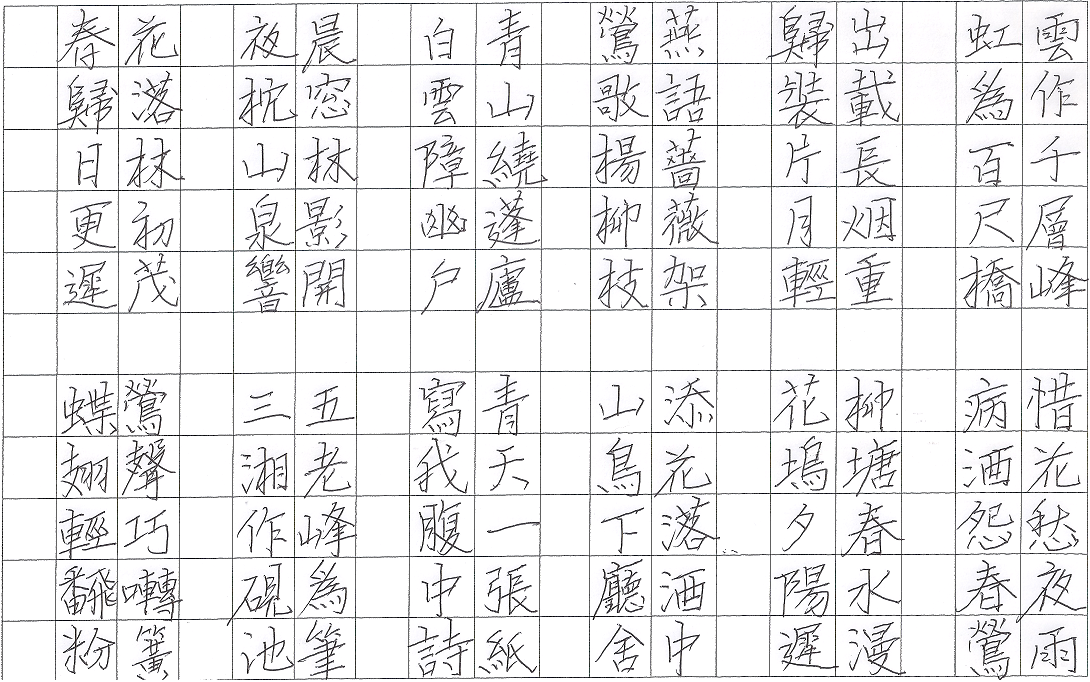 雲作千層峰
虹爲百尺橋
出載長烟重
歸裝片月輕
燕語薔薇架
鶯歌楊柳枝
青山繞蓬廬
白雲障幽戶
晨窓林影開
夜枕山泉響
花落林初茂
春歸日更遲
惜花愁夜雨
病酒怨春鶯
柳塘春水漫
花塢夕陽遲
添花落酒中
山鳥下廳舍
青天一張紙
寫我腹中詩
五老峰爲筆
三湘作硯池
鶯聲巧囀簧
蝶翅輕飜粉